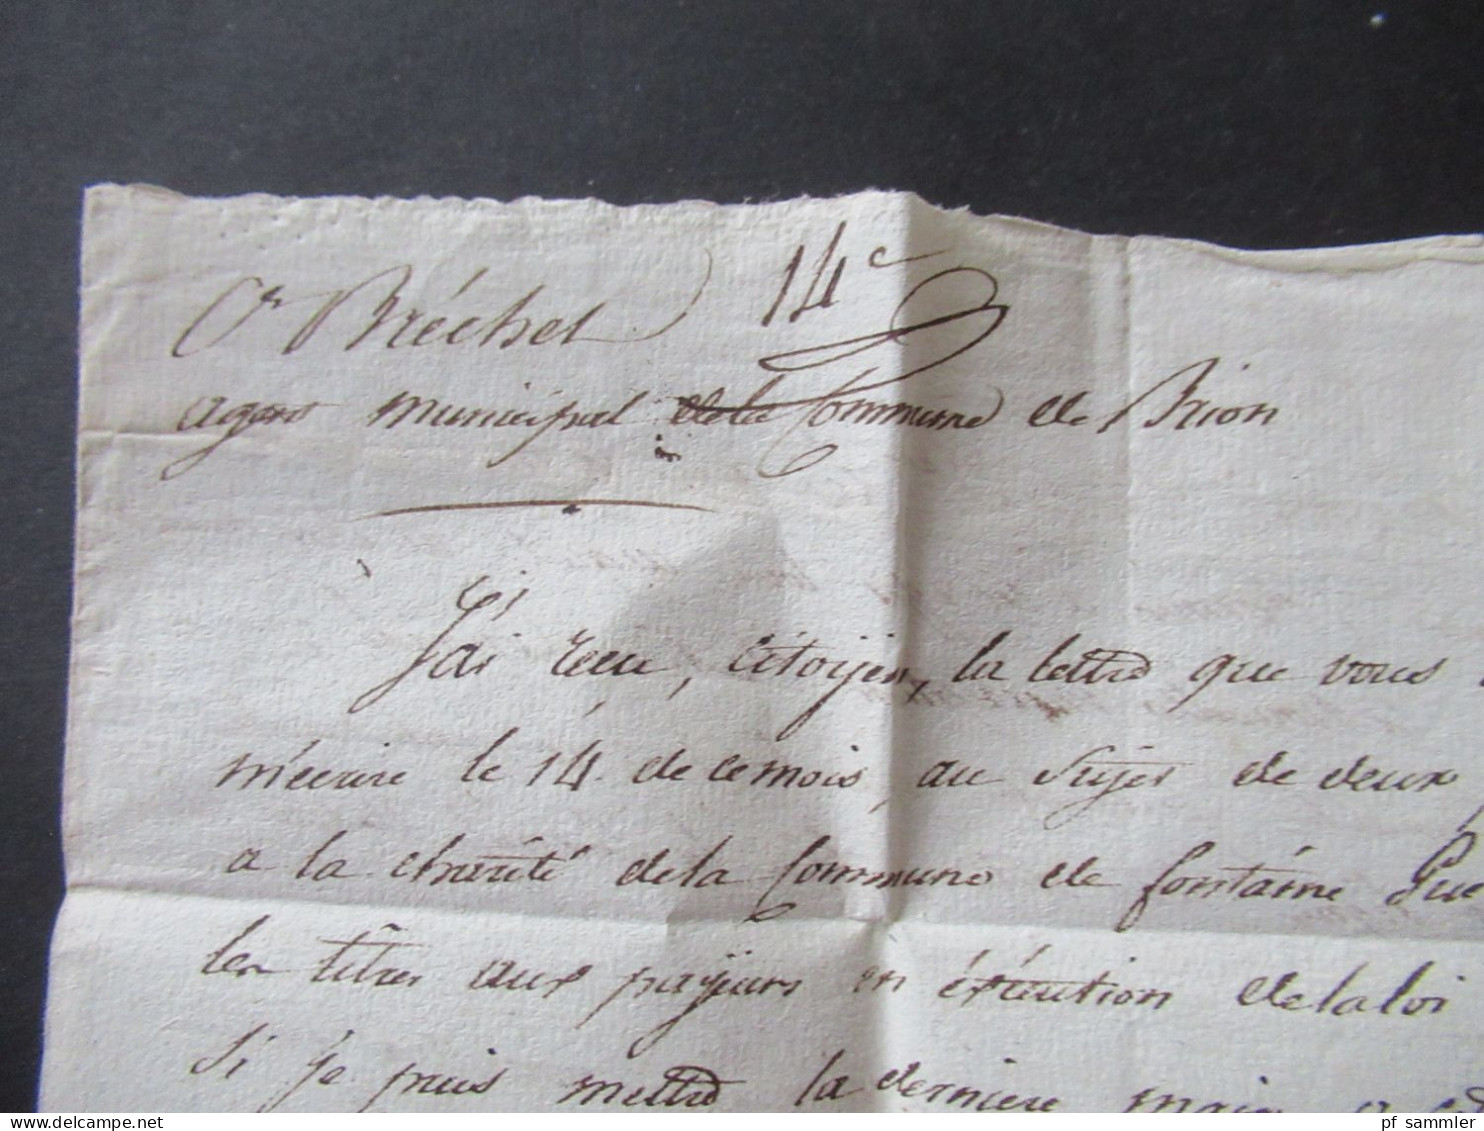 14e
Cen Bréchet
agent municipal de la Commune de Brion
J'ai reçu, citoyen, la lettre que vous
m'écrire le 14 de ce mois, au sujet de deux
a la charité de la Commune de fontaine Gue
les titres aux payeurs en éxécution de la loi
Si je puis mettre la derniere main a
pf_sammler
www.delcampe.net